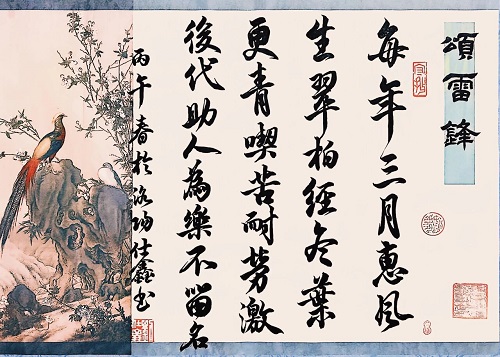 頌雷鋒
每年三月惠风
生翠柏經冬葉
更青喫苦耐劳激
後代助人為樂不留名
丙午春於洛陽仕鑫书